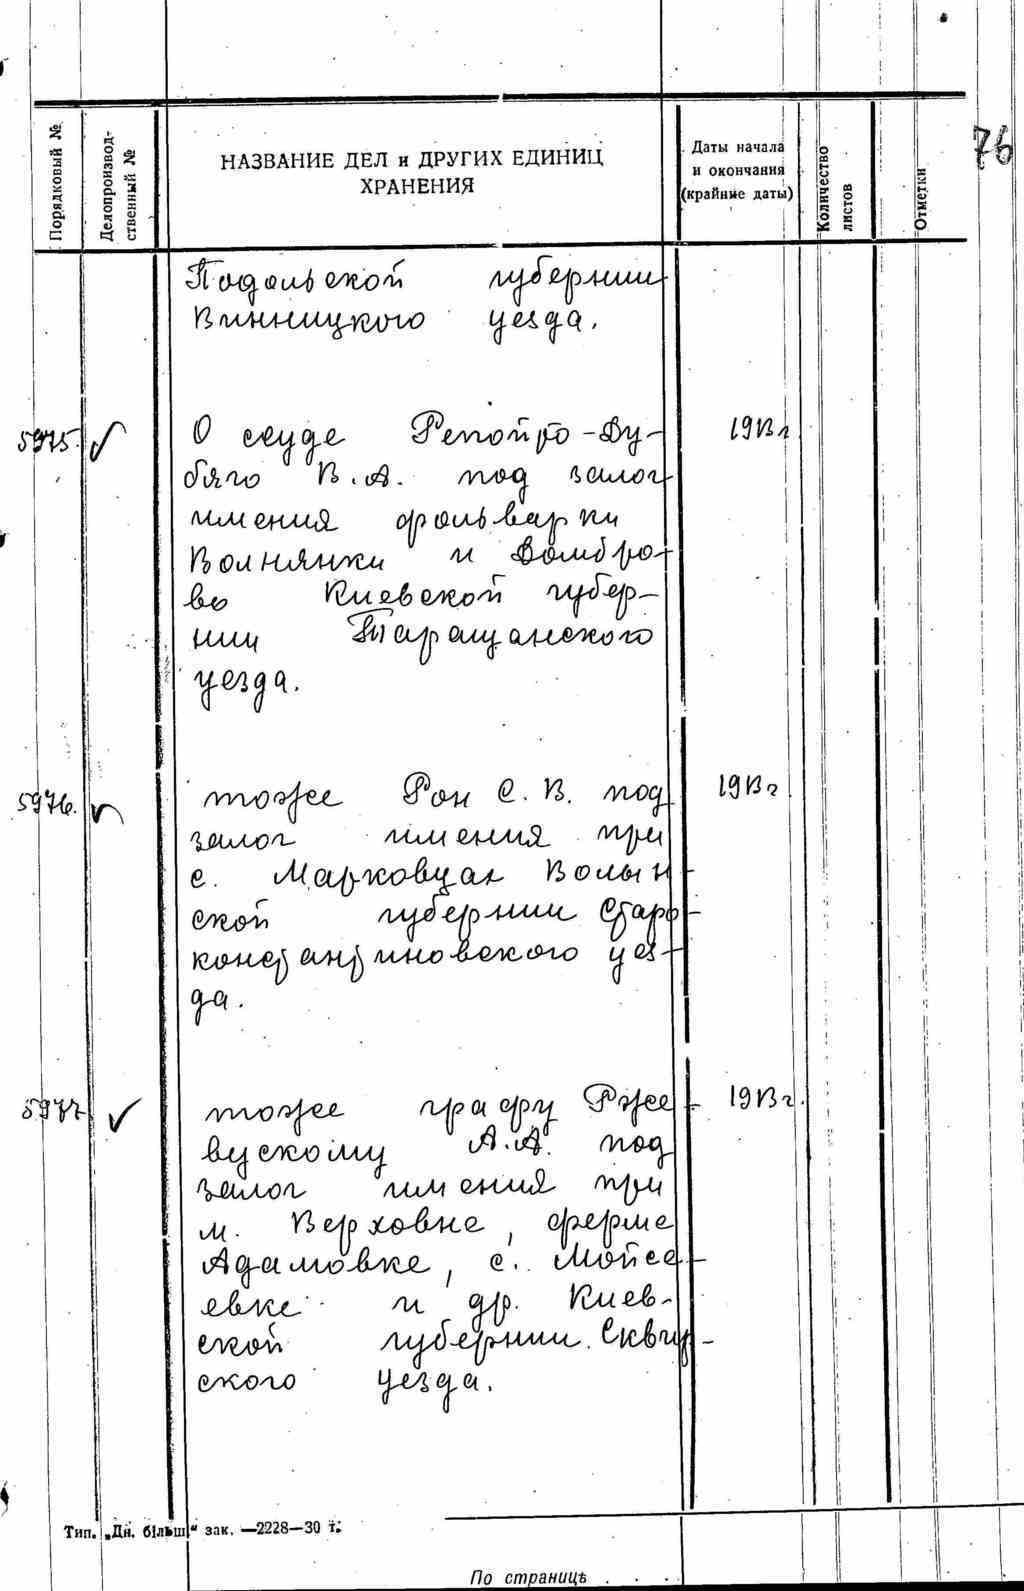 76
Порядковый №
Делопроизвод-
ственный №
НАЗВАНИЕ ДЕЛ и ДРУГИХ ЕДИНИЦ
ХРАНЕНИЯ
Даты начала
и окончания
(крайние даты)
Количество
листов
Отметки
Подольской губернии
Винницкого уезда.
5975. О ссуде Репойто-Ду- 1913 г.
бяго В.А. под залог
имения фольварки
Волнянки и Домбро-
во Киевской губер-
нии Таращанского
уезда.
5976. тоже Рон С. В. под 1913 г
залог имения при
с. Марковцах Волын-
ской губернии Старо-
константиновского уез-
да.
5977 тоже графу Рже- 1913 г.
вускому А.А. под
залог имения при
м. Верховне, ферме
Адамовке, с. Мойсе-
евке и др. Киев-
ской губернии Сквир-
ского уезда.
Тип. „Дн. більш“ зак. —2228—30 т.
По странице . . .